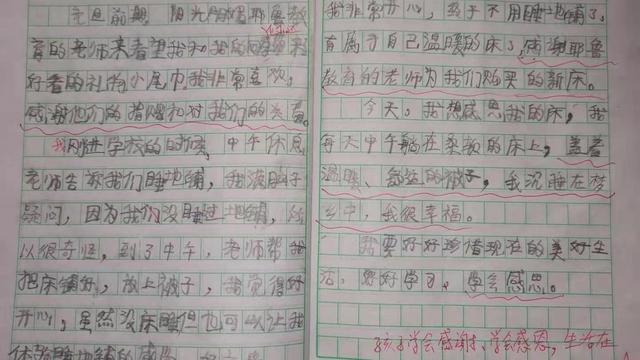 元旦前期 阳光 喂耶鲁教
育的老师来看望我和我的 来
好看的礼物小尾巾我非常喜欢。
感谢他们的 和对我们的关爱
我刚进学校的时候，中午休息
老师告诉我们睡地铺，我满脑子
疑问，因为我们没睡过地铺，所
以很奇怪，到了中午，老师帮我
把床铺好，放上被子，我觉得好
开心，虽然没床睡但也可以让我
体 睡地铺的感
我非常开心，终于不用睡地铺了，
有属于自己温暖的床了，感谢耶鲁
教育的老师为我们购买的新床。
今天，我想感恩我的床，我
每天中午躺在柔软的床上，盖着
温暖、舒适的被子，我沉睡在梦
乡中，我很幸福。
我要好好珍惜现在的美好生
活，好好学习，学会感恩。
孩子学会感谢、学会感恩，生活在